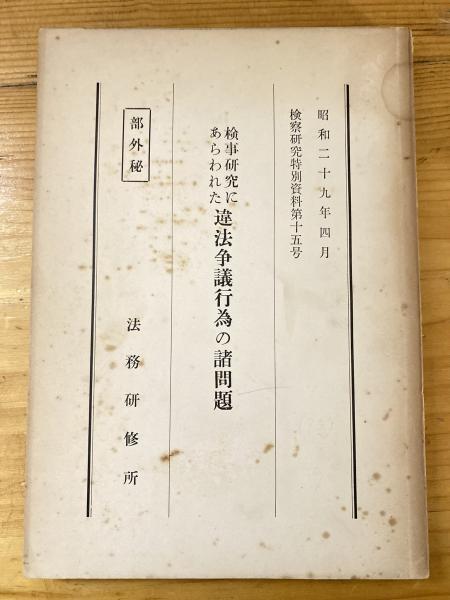 昭和二十九年四月
検察研究特別資料第十五号
検事研究に
あらわれた
違法争議行為の諸問題
部外秘
法務研修所